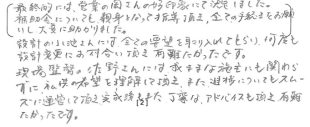 最終的には、営業の関さんのお印象にて決定しました。
補助金についても親身なって相談頂き、全ての手続きをお願
いし大変に助かりました。
設計の小池さんには、全ての要望を取り入れてもらい、何度も
設計変更にお付合い頂き有難たかったです。
現場監督の佐野さんには、我ままな施主にも関わら
ずに私供の希望を理解して頂き、また、進捗についてもスムー
ズに運営して頂き完成後もまた丁寧な、アドバイスも頂き有難
たかったです。
[2]